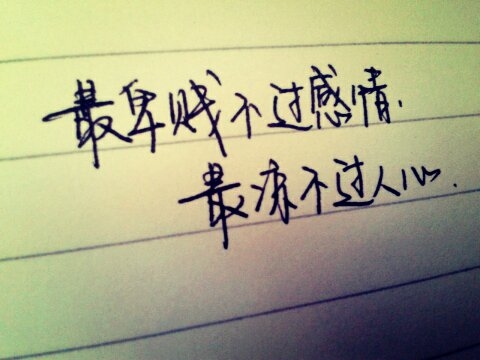 最卑贱不过感情.
最凉不过人心.